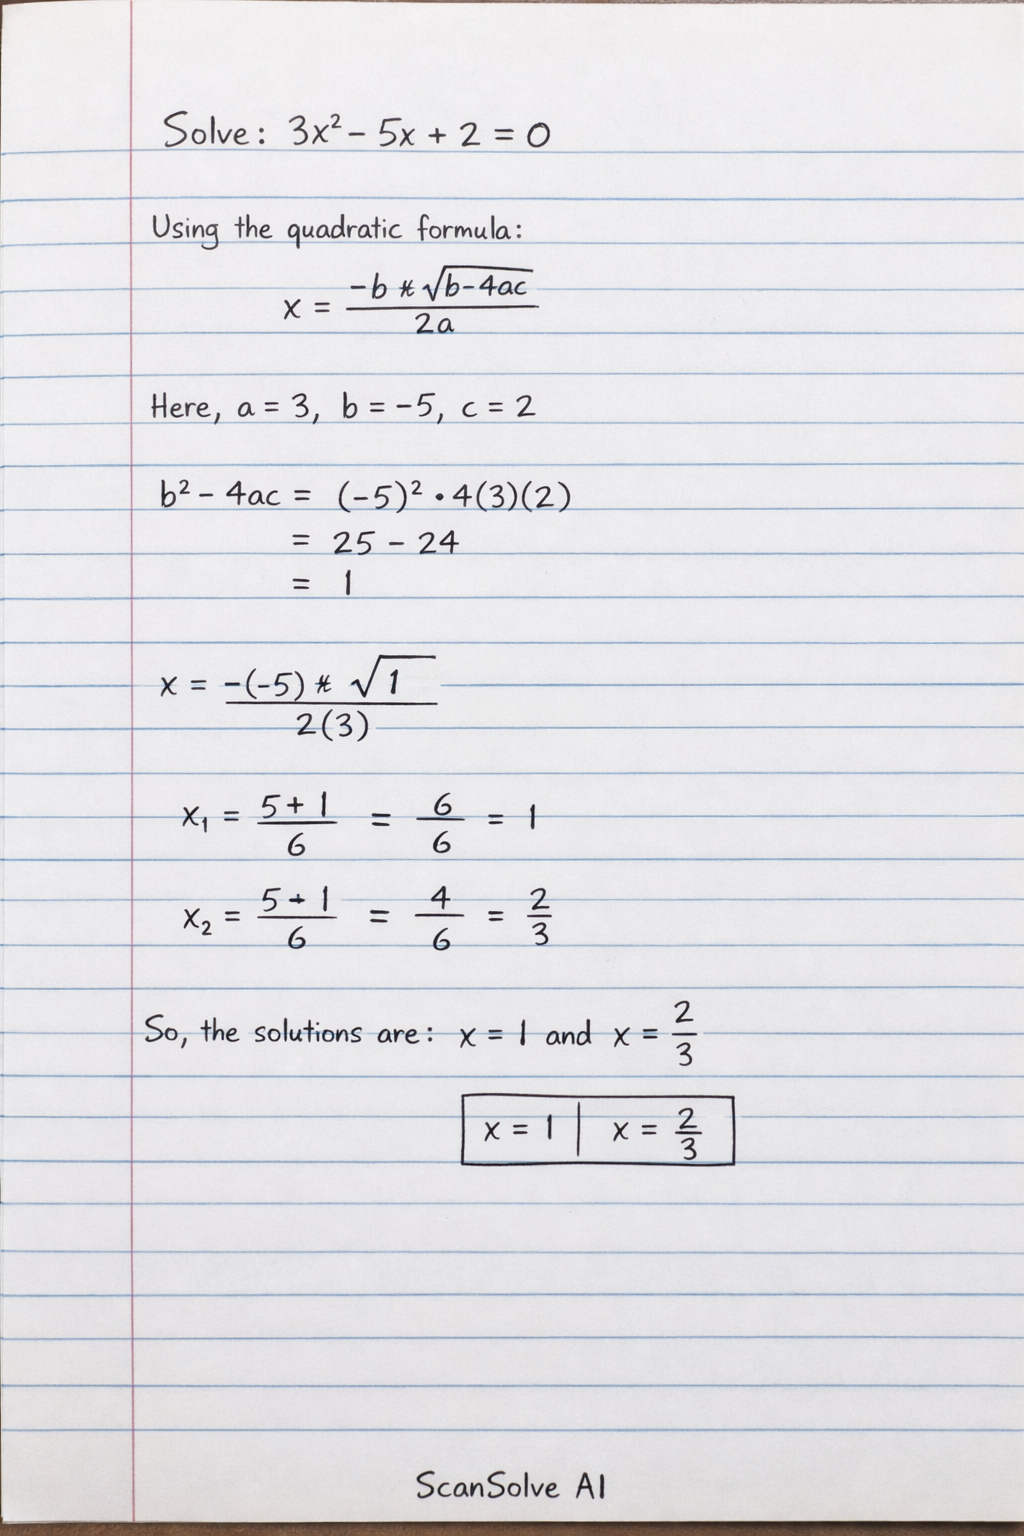 Solve: 3x² − 5x + 2 = 0
Using the quadratic formula:
x = (-b * √(b-4ac)) / 2a
Here, a = 3, b = -5, c = 2
b² − 4ac = (-5)² · 4(3)(2)
= 25 − 24
= 1
x = (-(-5) * √1) / 2(3)
x₁ = (5 + 1)/6 = 6/6 = 1
x₂ = (5 + 1)/6 = 4/6 = 2/3
So, the solutions are: x = 1 and x = 2/3
x = 1 | x = 2/3
ScanSolve AI